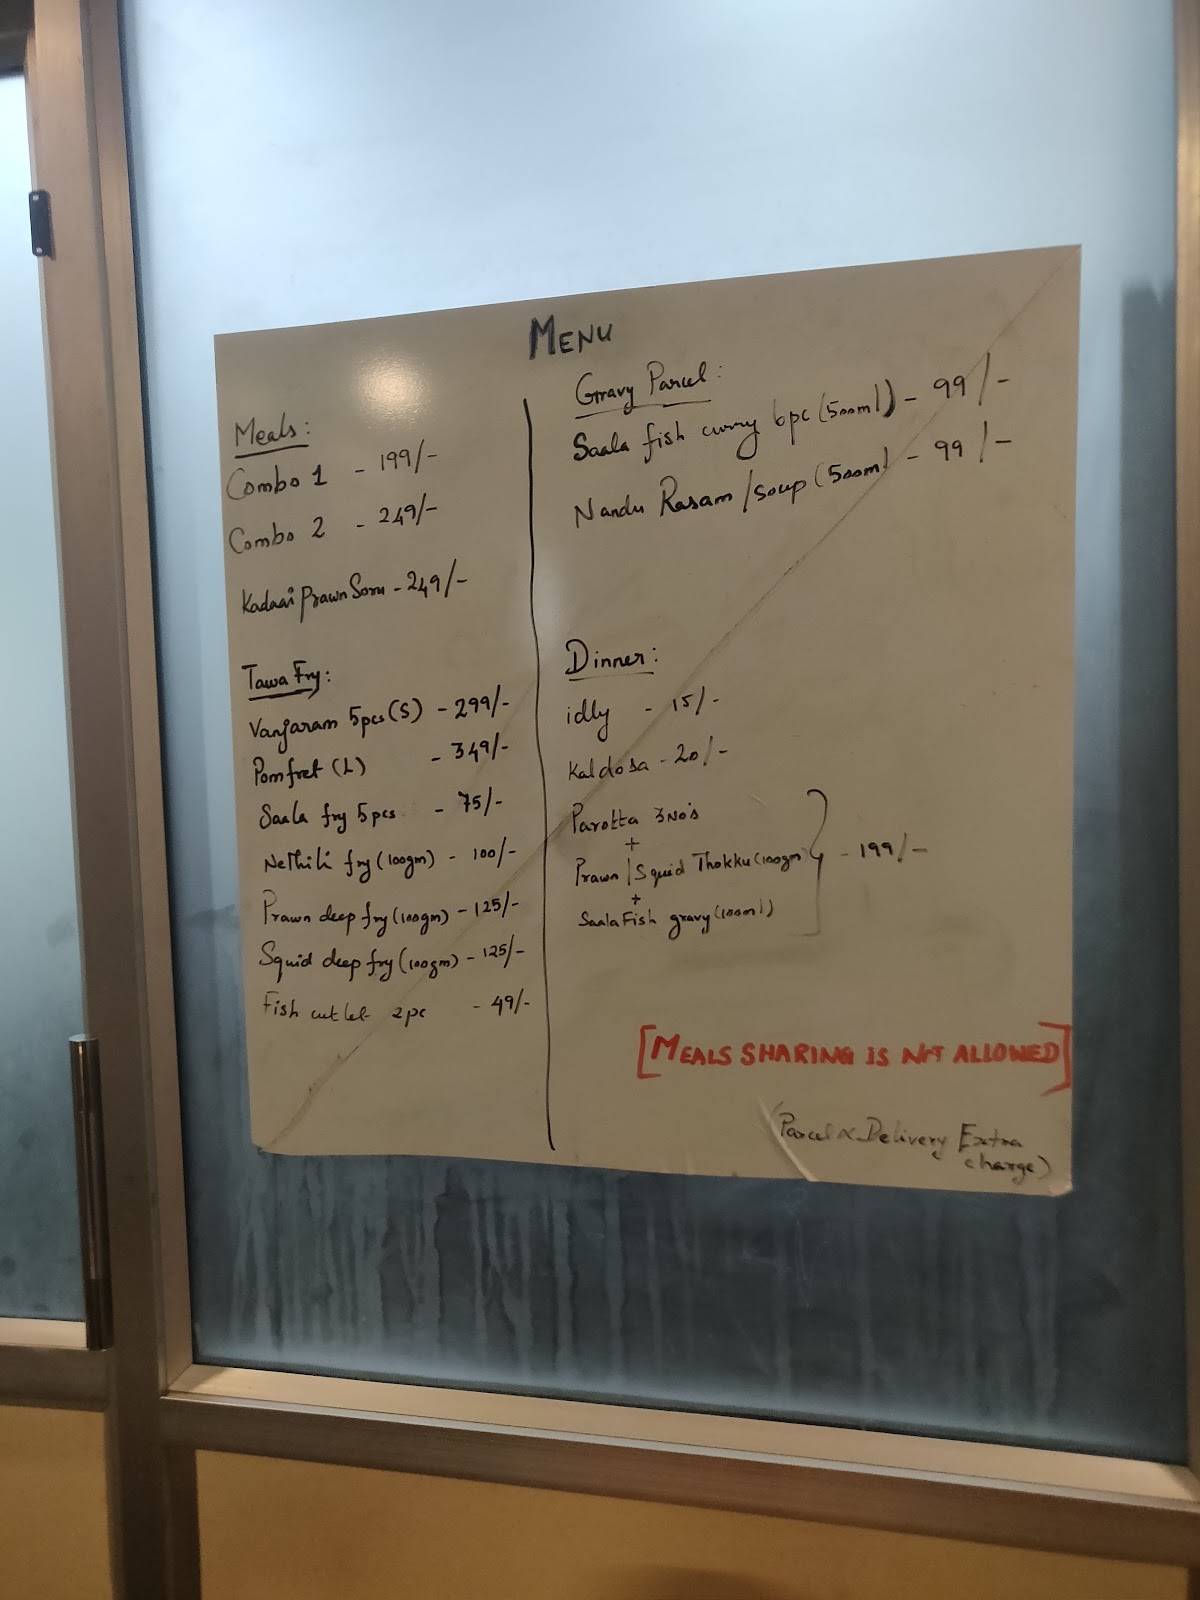 MENU
Meals:
Combo 1 - 199/-
Combo 2 - 249/-
Kadaai Prawn Soru - 249/-
Tawa Fry:
Vanjaram 5pcs (S) - 299/-
Pomfret (L) - 349/-
Saala fry 5pcs - 75/-
Nethili fry (100gm) - 100/-
Prawn deep fry (100gm) - 125/-
Squid deep fry (100gm) - 125/-
Fish cutlet 2pc - 49/-
Gravy Parcel:
Saala fish curry 6pc (500ml) - 99/-
Nandu Rasam/soup (500ml - 99/-
Dinner:
idly - 15/-
Kaldosa - 20/-
Parotta 3No's
+
Prawn/Squid Thokku (100gm) - 199/-
+
Saala Fish gravy (100ml)
[MEALS SHARING IS NOT ALLOWED]
(Parcel & Delivery Extra
charge)